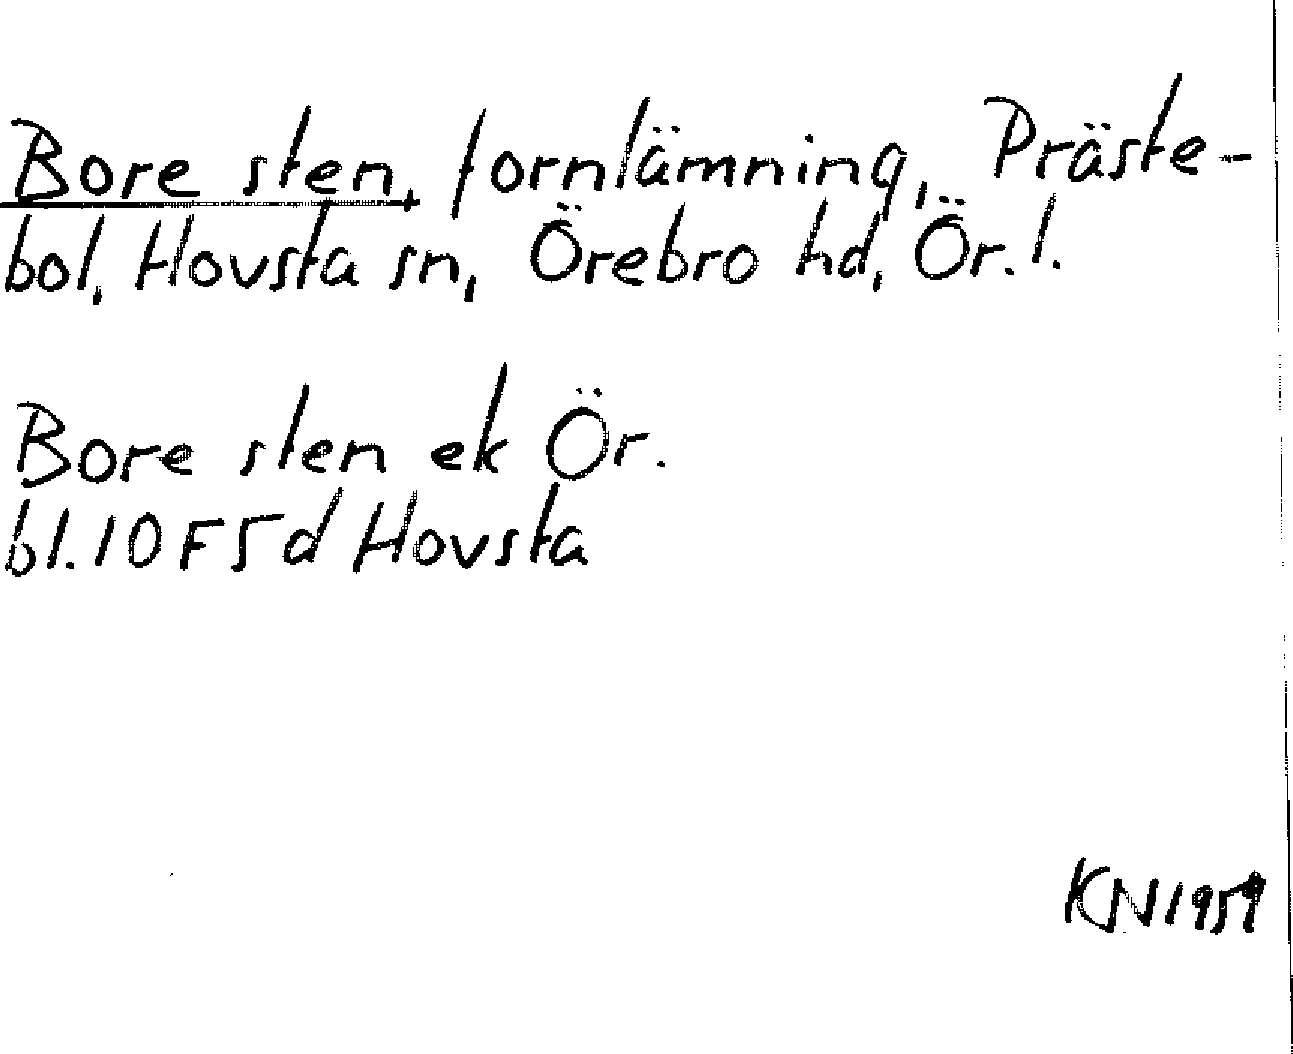 Bore sten, fornlämning, Präste-
bol, Hovsta sn, Örebro hd, Ör. l.
Bore sten ek Ör.
bl. 10 F 5 d Hovsta
KN 1959